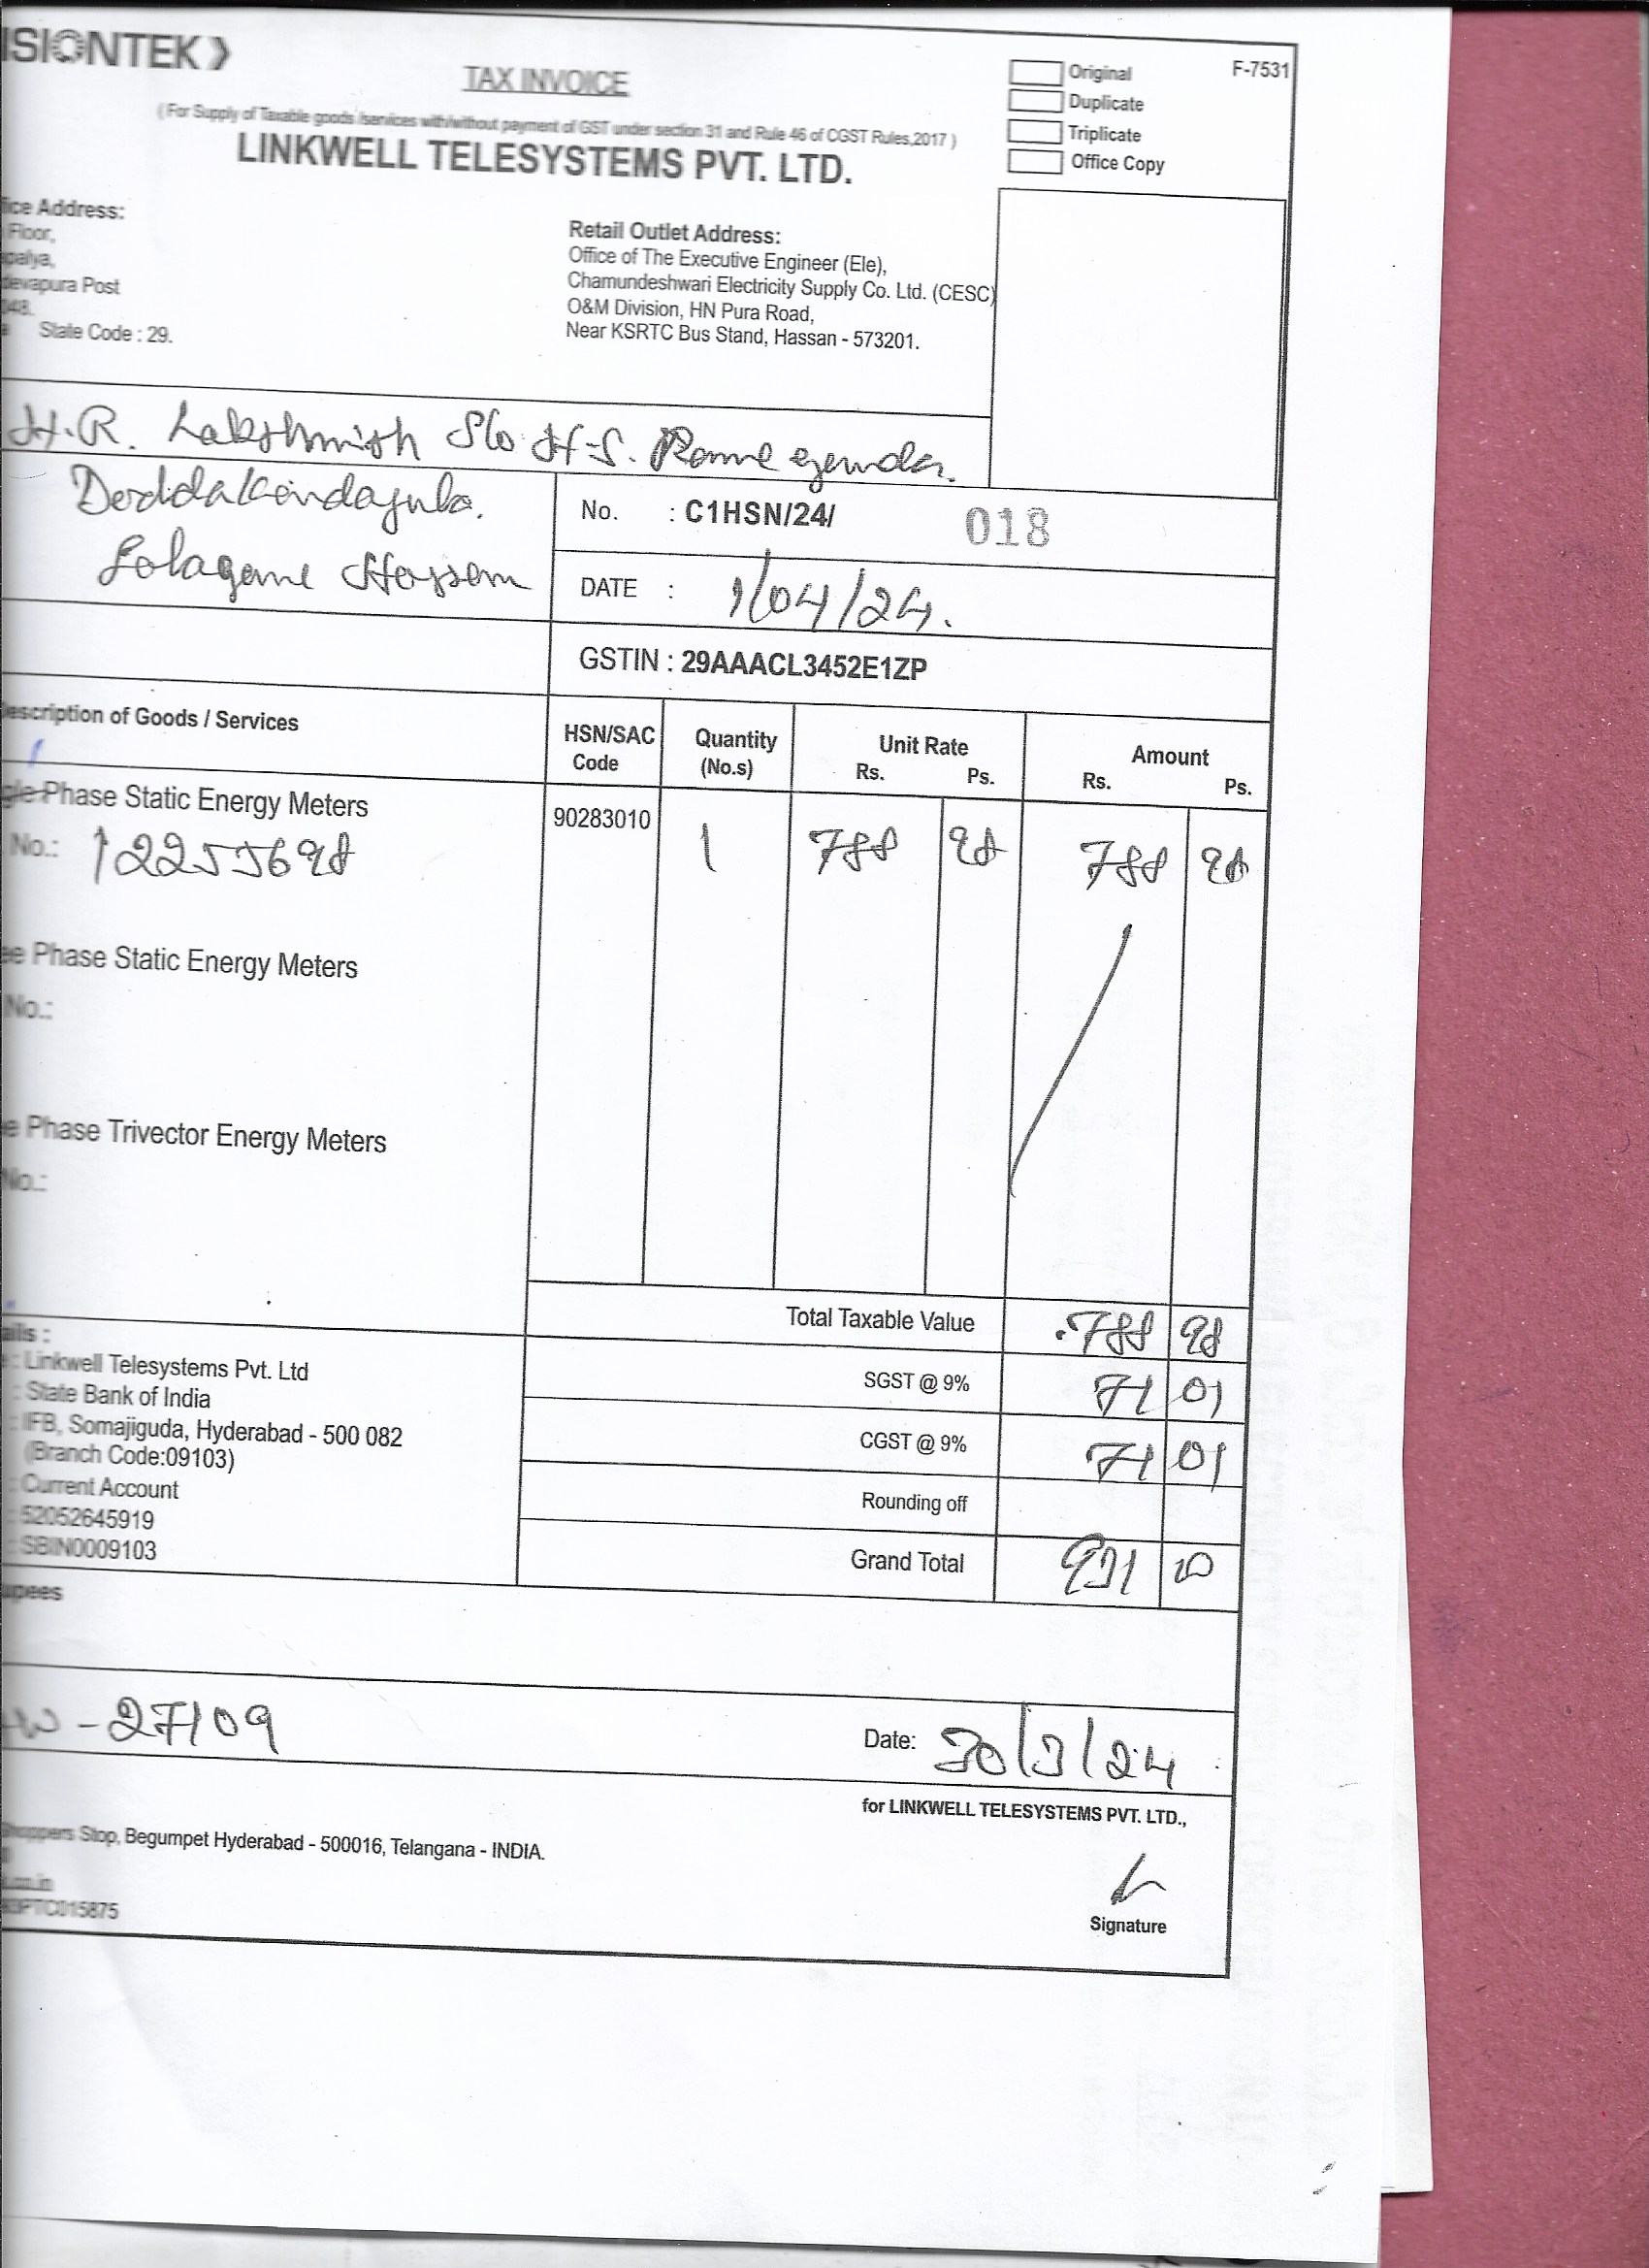 ISIONTEK
TAX INVOICE
(For Supply of Taxable goods /services with/without payment of GST under section 31 and Rule 46 of CGST Rules,2017 )
LINKWELL TELESYSTEMS PVT. LTD.
Original
Duplicate
Triplicate
Office Copy
F-7531
ice Address:
Floor,
palya,
devapura Post
048.
State Code : 29.
Retail Outlet Address:
Office of The Executive Engineer (Ele),
Chamundeshwari Electricity Supply Co. Ltd. (CESC)
O&M Division, HN Pura Road,
Near KSRTC Bus Stand, Hassan - 573201.
H.R. Lakshmish S/o H-S.
No. : C1HSN/24/ 018
DATE : 1/04/24.
GSTIN : 29AAACL3452E1ZP
escription of Goods / Services HSN/SAC Code Quantity (No.s) Unit Rate Rs. Ps. Amount Rs. Ps.
gle Phase Static Energy Meters 90283010 1 788 98 788 98
No.: 12255698
ee Phase Static Energy Meters
No.:
e Phase Trivector Energy Meters
No.:
Total Taxable Value 788 98
SGST @ 9% 71 01
CGST @ 9% 71 01
Rounding off
Grand Total 931 00
ails :
: Linkwell Telesystems Pvt. Ltd
: State Bank of India
: IFB, Somajiguda, Hyderabad - 500 082
(Branch Code:09103)
: Current Account
: 52052645919
: SBIN0009103
upees
- 27109
Date: 30/3/24
for LINKWELL TELESYSTEMS PVT. LTD.,
Shoppers Stop, Begumpet Hyderabad - 500016, Telangana - INDIA.
.co.in
PTC015875
Signature